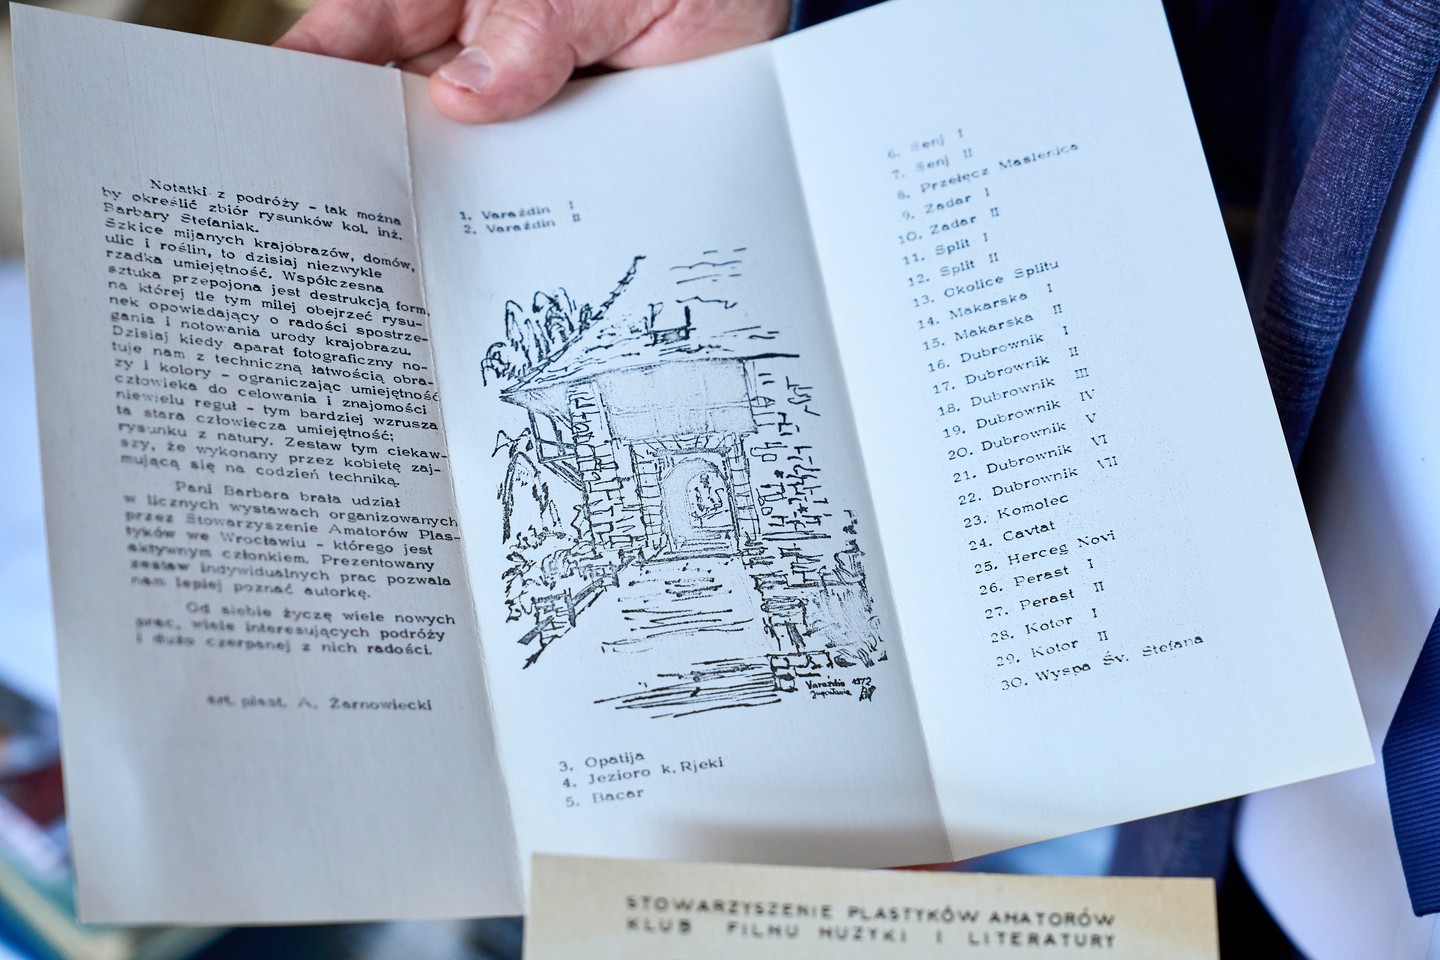 Notatki z podróży - tak można
by określić zbiór rysunków kol. inż.
Barbary Stefaniak.
Szkice mijanych krajobrazów, domów,
ulic i roślin, to dzisiaj niezwykle
rzadka umiejętność. Współczesna
sztuka przepojona jest destrukcją form,
na której tle tym milej obejrzeć rysu-
nek opowiadający o radości spostrze-
gania i notowania urody krajobrazu.
Dzisiaj kiedy aparat fotograficzny no-
tuje nam z techniczną łatwością obra-
zy i kolory - ograniczając umiejętność
człowieka do celowania i znajomości
niewielu reguł - tym bardziej wzrusza
ta stara człowiecza umiejętność;
rysunku z natury. Zestaw tym ciekaw-
szy, że wykonany przez kobietę zaj-
mującą się na codzień techniką.
Pani Barbara brała udział
w licznych wystawach organizowanych
przez Stowarzyszenie Amatorów Plas-
tyków we Wrocławiu - którego jest
aktywnym członkiem. Prezentowany
zestaw indywidualnych prac pozwala
nam lepiej poznać autorkę.
Od siebie życzę wiele nowych
prac, wiele interesujących podróży
i dużo czerpanej z nich radości.
art. plast. A. Żarnowiecki
1. Varażdin I
2. Varażdin II
Varaždin 1972
Jugosławia
3. Opatija
4. Jezioro k. Rjeki
5. Bacar
6. Senj I
7. Senj II
8. Przełęcz Maslenica
9. Zadar I
10. Zadar II
11. Split I
12. Split II
13. Okolice Splitu
14. Makarska I
15. Makarska II
16. Dubrownik I
17. Dubrownik II
18. Dubrownik III
19. Dubrownik IV
20. Dubrownik V
21. Dubrownik VI
22. Dubrownik VII
23. Komolec
24. Cavtat
25. Herceg Novi
26. Perast I
27. Perast II
28. Kotor I
29. Kotor II
30. Wyspa Św. Stefana
STOWARZYSZENIE PLASTYKÓW AMATORÓW
KLUB FILMU MUZYKI I LITERATURY